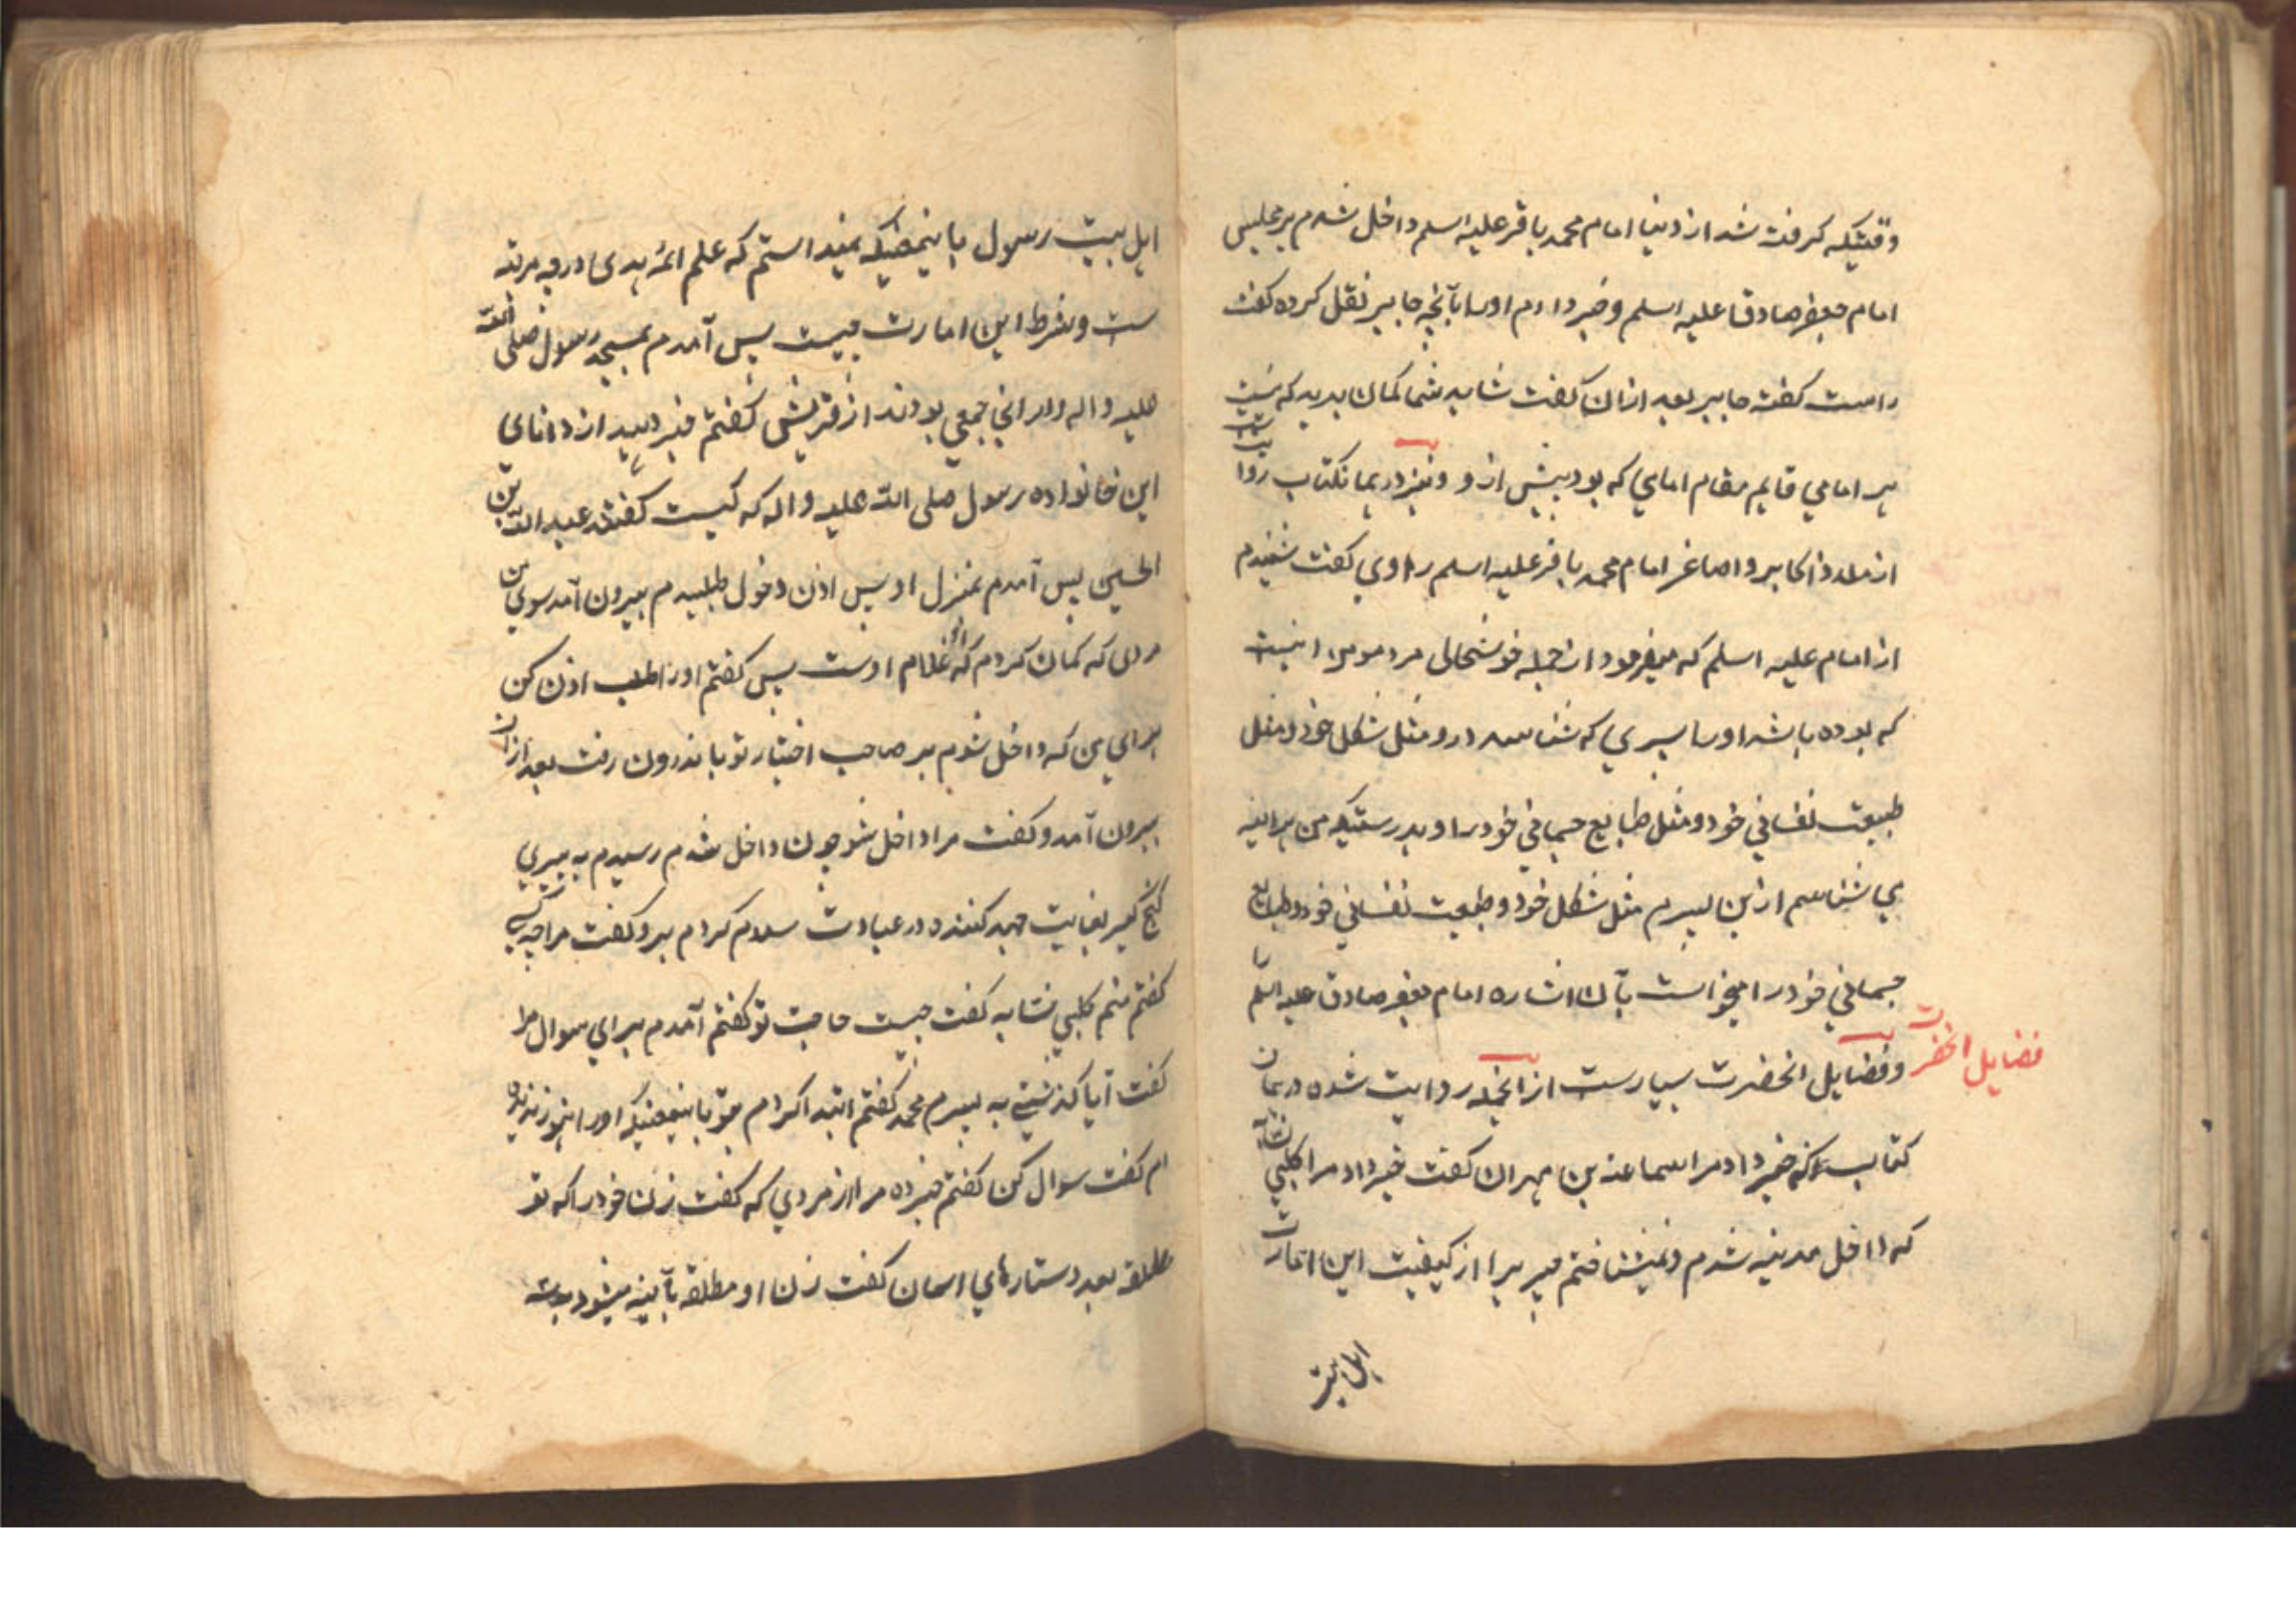 وقتیکه گرفت شد از دنیا امام محمد باقر علیه اسلم داخل شدم بر مجلس
امام جعفر صادق علیه اسلم و خبر دادم او را بآنچه جابر نقل کرده گفت
راست گفته جابر بعد ازان گفت شاید شما گمان برید که نیست
هر امامی قایم مقام امامی که بود پیش از و و نیز در همانکتاب روایت
از ملاذ اکابر و اصاغر امام محمد باقر علیه اسلم راوی گفت شنیدم
از امام علیه اسلم که میفرمود از جمله خوشحالی مرد مومن اینست
که بوده باشد او را پسری که شناسد درو مثل شکل خود و مثل
طبیعت نفسانی خود و مثل طبایع جسمانی خود را و بدرستیکه من هر آینه
می شناسم ازین پسرم مثل شکل خود و طبیعت نفسانی خود و طبایع
جسمانی خود را میخواست بآن اشاره امام جعفر صادق علیه اسلم را
فضایل انحضرت
و فضایل انحضرت بسیارست از انجمله روایت شده در همان
کتاب که خبر داد مرا سماعه بن مهران گفت خبر داد مرا کلبی نسابه
که داخل مدینه شدم و نمیشناختم چیزیرا از کیفیت این امارت
اهل بیت
اهل بیت رسول باینمعنیکه نمیدانستم که علم ائمه هدی در چه مرتبه
ست و شرط این امارت چیست پس آمدم بمسجد رسول صلی الله
علیه و اله و دران جمعی بودند از قریش گفتم خبر دهید از دانای
این خانواده رسول صلی الله علیه و اله که کیست گفتند عبد الله بن
الحسین پس آمدم بمنزل او پس اذن دخول طلبیدم بیرون آمد سوی من
مردی که گمان کردم که او غلام اوست پس گفتم او را طلب اذن کن
برای من که داخل شوم بر صاحب اختیار تو باندرون رفت بعد ازان
بیرون آمد و گفت مرا داخل شو چون داخل شدم رسیدم به پیری
گنج گیر بغایت جهد کننده در عبادت سلام کردم برو گفت مرا چه کسی
گفتم منم کلبی نسابه گفت چیست حاجت تو گفتم آمدم برای سوال مرا
گفت آیا گذشتی به پسرم محمد گفتم ابتدا کردم بتو باینمعنیکه او را هنوز ندیده
ام گفت سوال کن گفتم خبر ده مرا از مردی که گفت زن خود را که تو
مطلقه بعدد ستارهای اسمان گفت زن او مطلقه بآینه میشود بسه